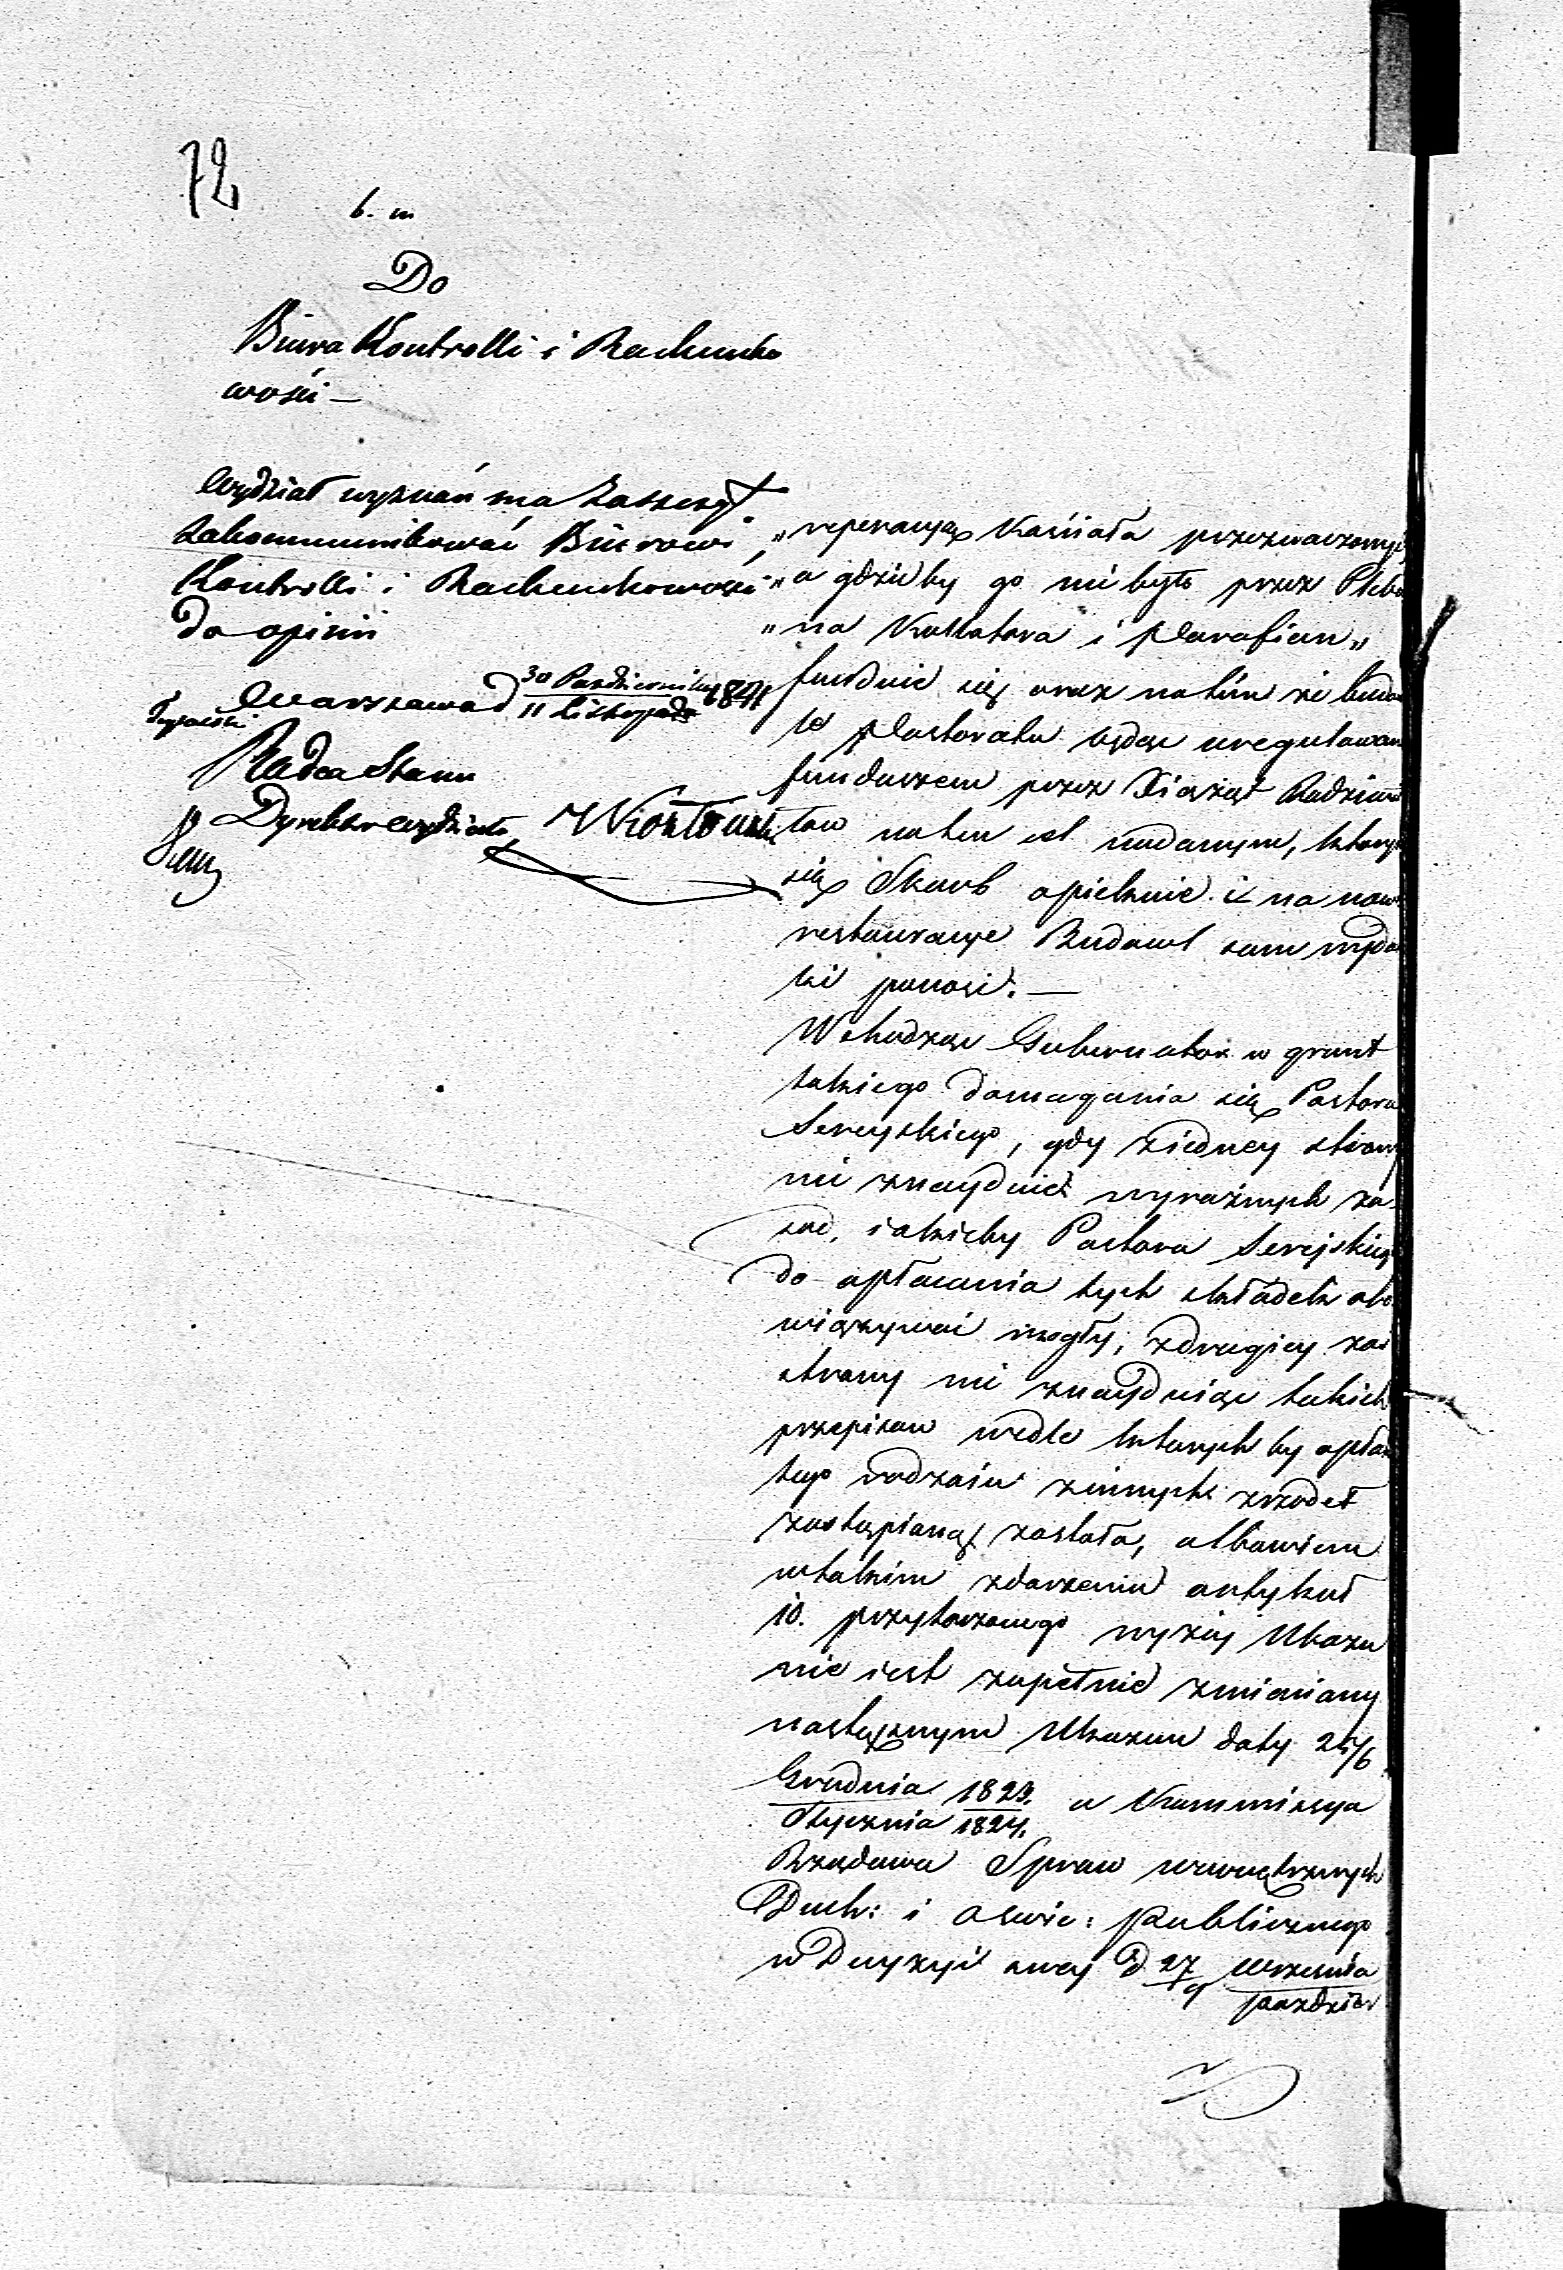 72
b. m
Do
Biura Kontrolli i Rachunko
wości —
Wydział wyznań ma zaszczyt
zakommunikować Biurowi
Kontrolli i Rachunkowości
do opinii
Warszawa d 30 Października / 11 Listopada 1841
Radca Stanu
Dyrektor Wydziału
„reperacyą Kościoła przeznaczonych
„a gdzieby go nie było przez Pleba
„na Kollatora i Parafian„
funduie się oraz na tém że budow
le Pastoratu będąc uregulowan
funduszem przez Xiążąt Radziwił
łów na ten cel nadanym, którym
się Skarb opiekuie i na nowe
restauracye Budowl sam wydat
ki ponosi. —
Wchodząc Gubernator w grunt
takiego domagania się Pastora
Sereyskiego, gdy z iedney strony
nie znayduie wyraźnych za-
sad, iakieby Pastora Serejskiego
do opłacania tych składek obo
wiązywać mogły, z drugiey zaś
strony nie znayduiąc takich
przepisow wedle których by opłata
tego rodzaiu z innych zrzodeł
zastąpioną została, albowiem
w takim zdarzeniu artykuł
10. przytoczonego wyżey Ukazu
nie iest zupełnie zmieniany
następnym Ukazem daty 25/6
Grudnia 1823. / Stycznia 1824. a Kommissya
Rządowa Spraw wewnętrznych
Duch: i Oświe: Publicznego
w Decyzyi swey d 27/9 Września / Paździer